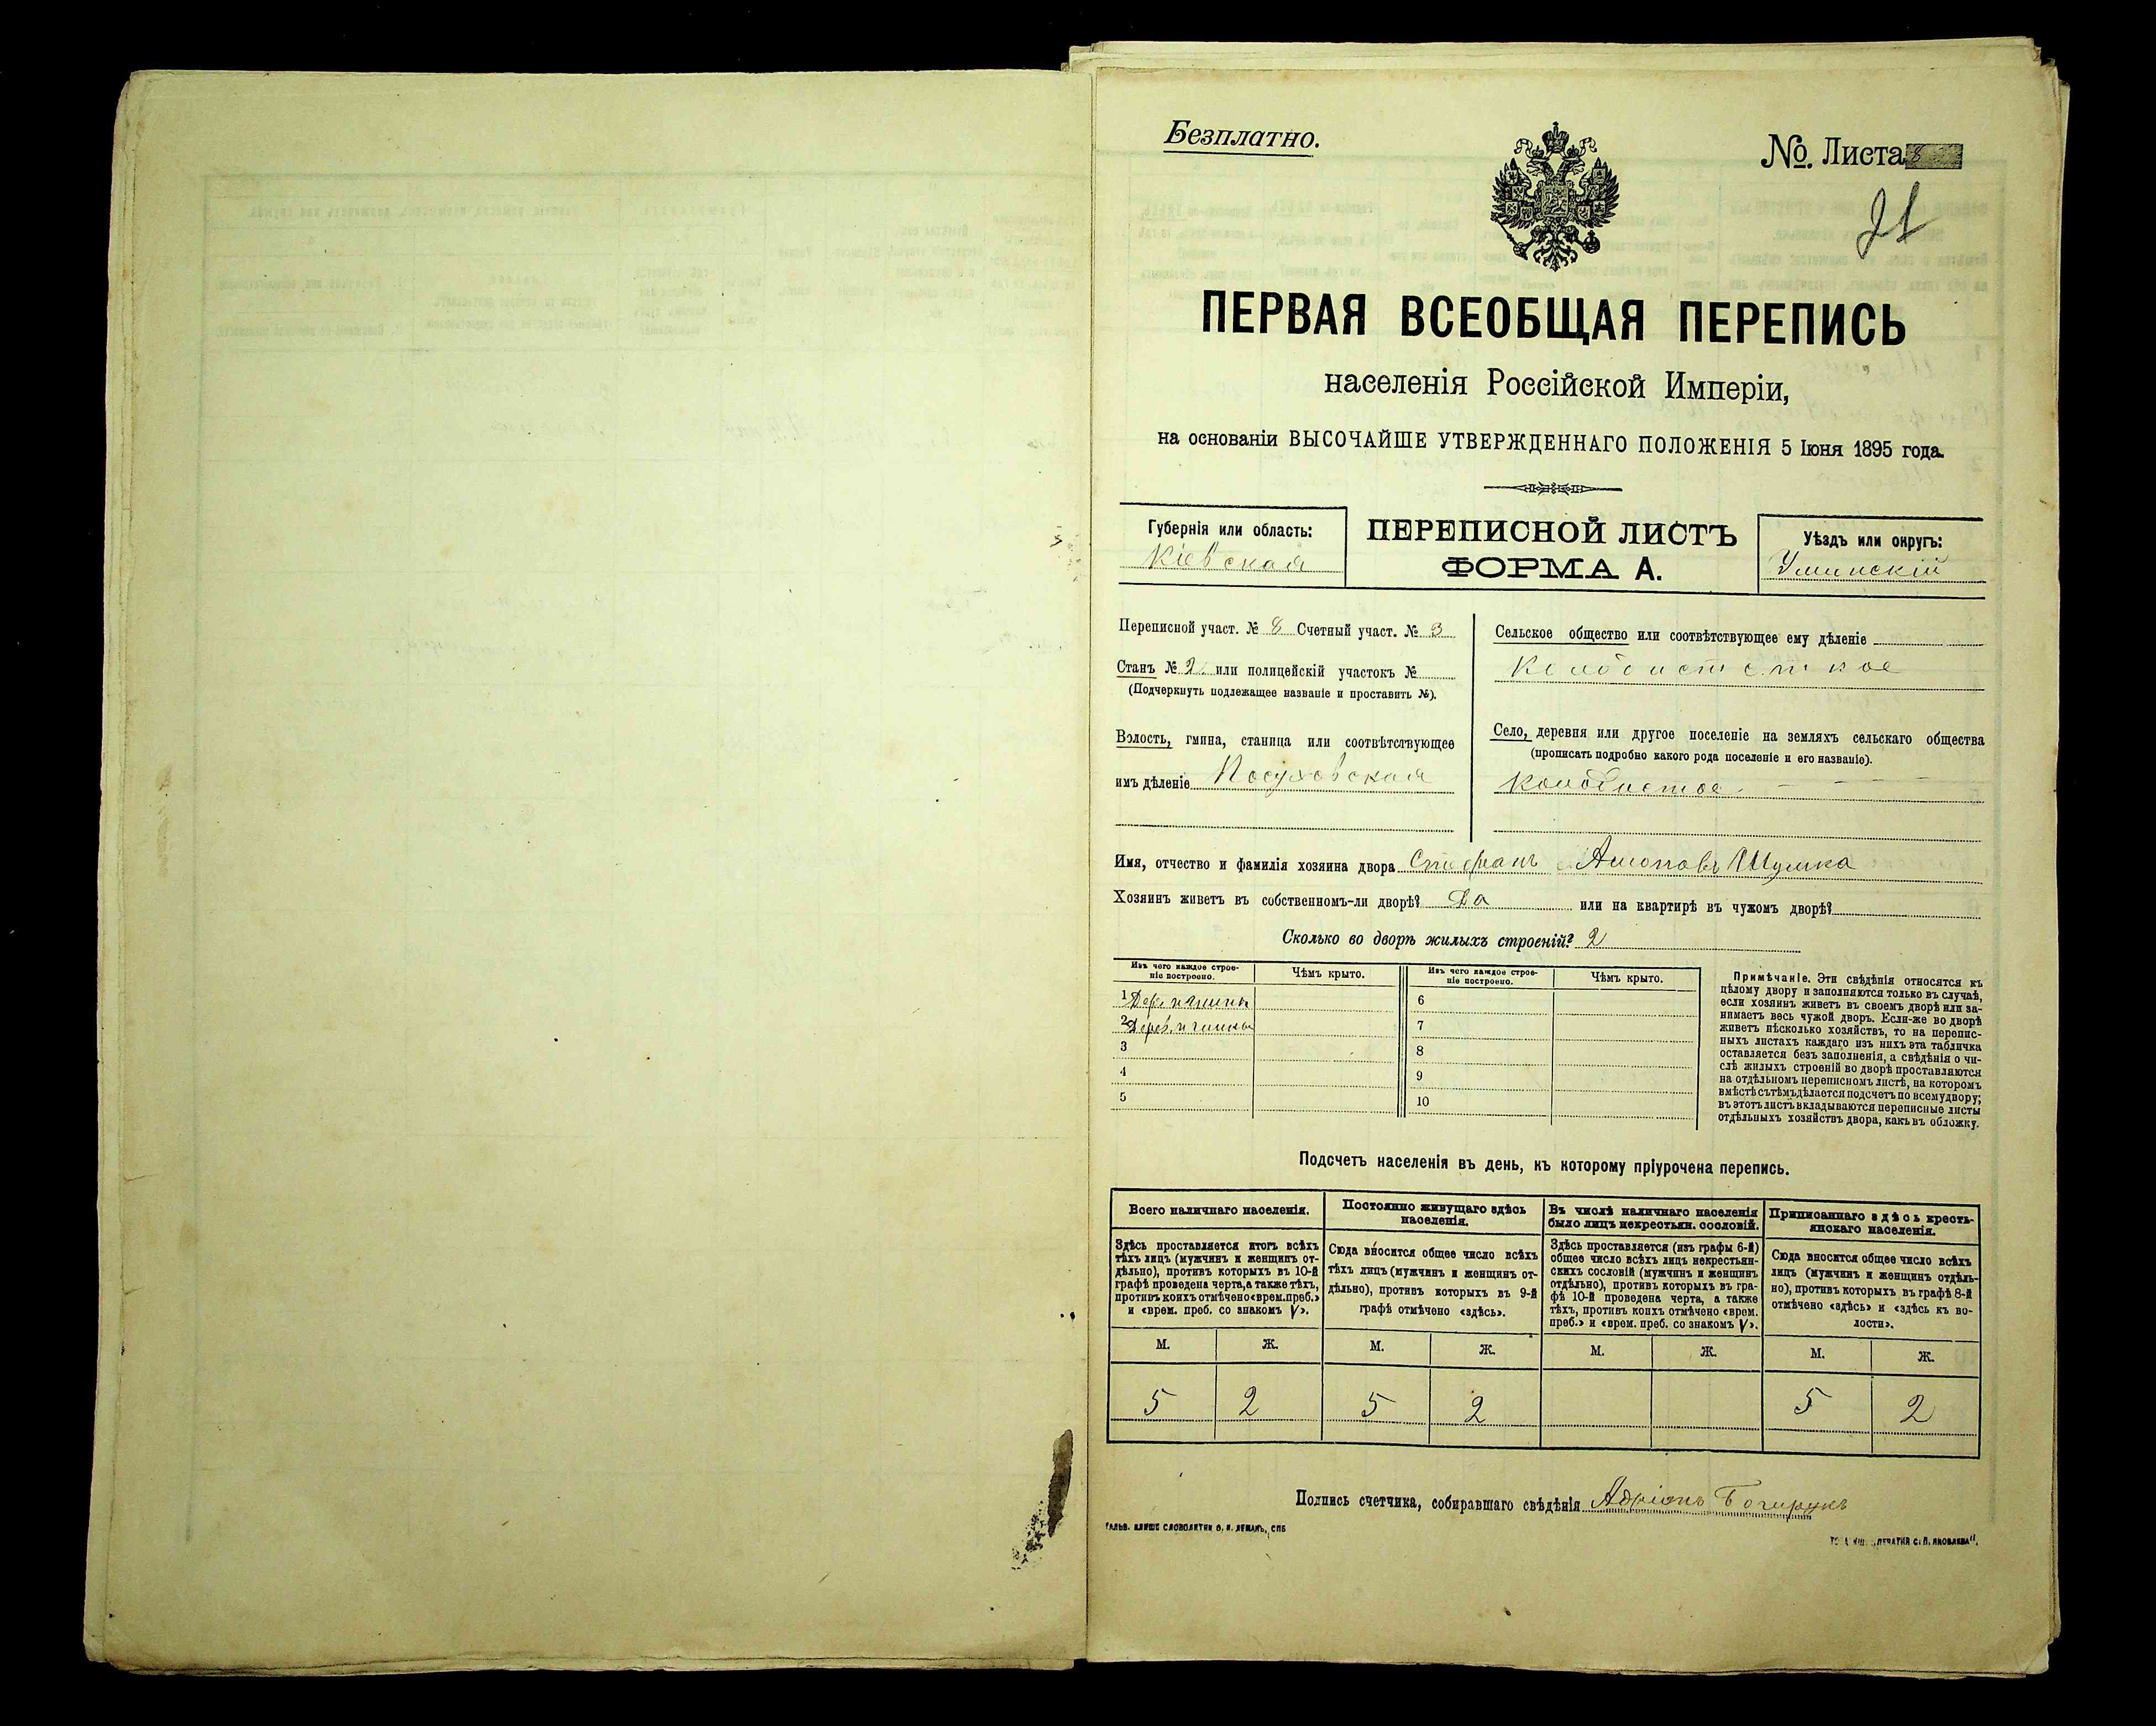 Безплатно.
№. Листа 8
21
ПЕРВАЯ ВСЕОБЩАЯ ПЕРЕПИСЬ
населенія Россійской Имперіи,
на основаніи ВЫСОЧАЙШЕ УТВЕРЖДЕННАГО ПОЛОЖЕНІЯ 5 Іюня 1895 года.
Губернія или область:
Кіевская
ПЕРЕПИСНОЙ ЛИСТЪ
ФОРМА А.
Уѣздъ или округъ:
Уманскій
Переписной участ. № 8 Счетный участ. № 3
Станъ № 2. или полицейскій участокъ №
(Подчеркнуть подлежащее названіе и проставить №).
Волость, гмина, станица или соотвѣтствующее
имъ дѣленіе Посуховская
Сельское общество или соотвѣтствующее ему дѣленіе
Село, деревня или другое поселеніе на земляхъ сельскаго общества
(прописать подробно какого рода поселеніе и его названіе).
Колодистое
Имя, отчество и фамилія хозяина двора Стефанъ Шушка
Хозяинъ живетъ въ собственномъ-ли дворѣ? Да или на квартирѣ въ чужомъ дворѣ?
Сколько во дворѣ жилыхъ строеній? 2
Изъ чего каждое строе-
ніе построено.
Чѣмъ крыто.
Изъ чего каждое строе-
ніе построено.
Чѣмъ крыто.
1
2
3
4
5
6
7
8
9
10
Примѣчаніе. Эти свѣдѣнія относятся къ
цѣлому двору и заполняются только въ случаѣ,
если хозяинъ живетъ въ своемъ дворѣ или за-
нимаетъ весь чужой дворъ. Если-же во дворѣ
живетъ нѣсколько хозяйствъ, то на перепис-
ныхъ листахъ каждаго изъ нихъ эта табличка
оставляется безъ заполненія, а свѣдѣнія о чи-
слѣ жилыхъ строеній во дворѣ проставляются
на отдѣльномъ переписномъ листѣ, на которомъ
вмѣстѣ съ тѣмъ дѣлается подсчетъ по всему двору;
въ этотъ листъ вкладываются переписные листы
отдѣльныхъ хозяйствъ двора, какъ въ обложку.
Подсчетъ населенія въ день, къ которому пріурочена перепись.
Всего наличнаго населенія.
Здѣсь проставляется итогъ всѣхъ
тѣхъ лицъ (мужчинъ и женщинъ от-
дѣльно), противъ которыхъ въ 10-й
графѣ проведена черта, а также тѣхъ,
противъ коихъ отмѣчено «врем. преб.»
и «врем. преб. со знакомъ V».
Постоянно живущаго здѣсь
населенія.
Сюда вносится общее число всѣхъ
тѣхъ лицъ (мужчинъ и женщинъ от-
дѣльно), противъ которыхъ въ 9-й
графѣ отмѣчено «здѣсь».
Въ числѣ наличнаго населенія
было лицъ некрестьян. сословій.
Здѣсь проставляется (изъ графы 6-й)
общее число всѣхъ лицъ некрестьян-
скихъ сословій (мужчинъ и женщинъ
отдѣльно), противъ которыхъ въ гра-
фѣ 10-й проведена черта, а также
тѣхъ, противъ коихъ отмѣчено «врем.
преб.» и «врем. преб. со знакомъ V».
Приписаннаго здѣсь кресть-
янскаго населенія.
Сюда вносится общее число всѣхъ
лицъ (мужчинъ и женщинъ отдѣль-
но), противъ которыхъ въ графѣ 8-й
отмѣчено «здѣсь» и «здѣсь къ во-
лости».
М. Ж. М. Ж. М. Ж. М. Ж.
5 2 5 2 5 2
Подпись счетчика, собиравшаго свѣдѣнія Адріонъ
ГАЛЬВ. КЛИШЕ СЛОВОЛИТНИ О. И. ЛЕМАНЪ, СПБ